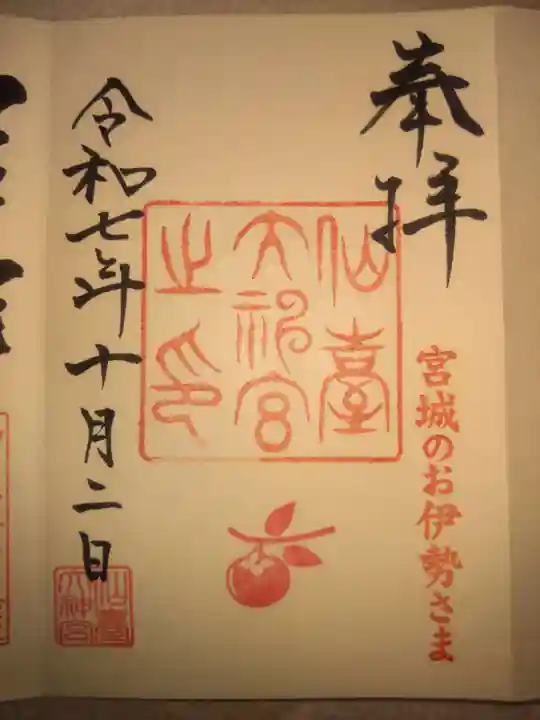 奉拝
宮城のお伊勢さま
仙臺
大神宮
之印
令和七年十月二日
仙臺
大神宮